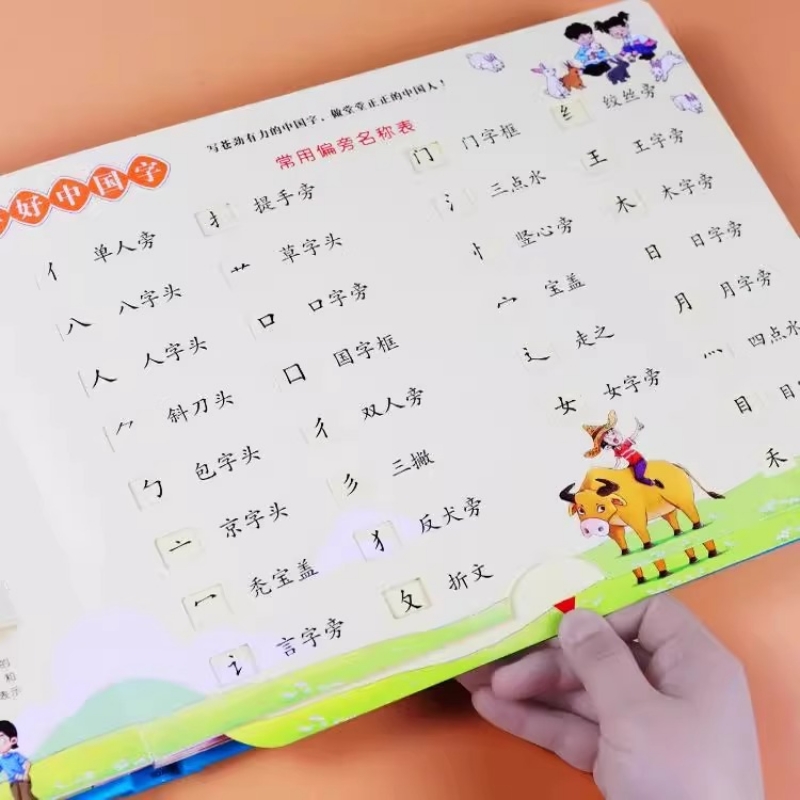 好中国字
写苍劲有力的中国字，做堂堂正正的中国人！
常用偏旁名称表
亻 单人旁
八 八字头
人 人字头
⺈ 斜刀头
勹 包字头
亠 京字头
冖 秃宝盖
讠 言字旁
扌 提手旁
艹 草字头
口 口字旁
囗 国字框
彳 双人旁
彡 三撇
犭 反犬旁
夂 折文
门 门字框
氵 三点水
忄 竖心旁
宀 宝盖
辶 走之
女 女字旁
纟 绞丝旁
王 王字旁
木 木字旁
日 日字旁
月 月字旁
灬 四点水
目 目
禾
的
和
表示